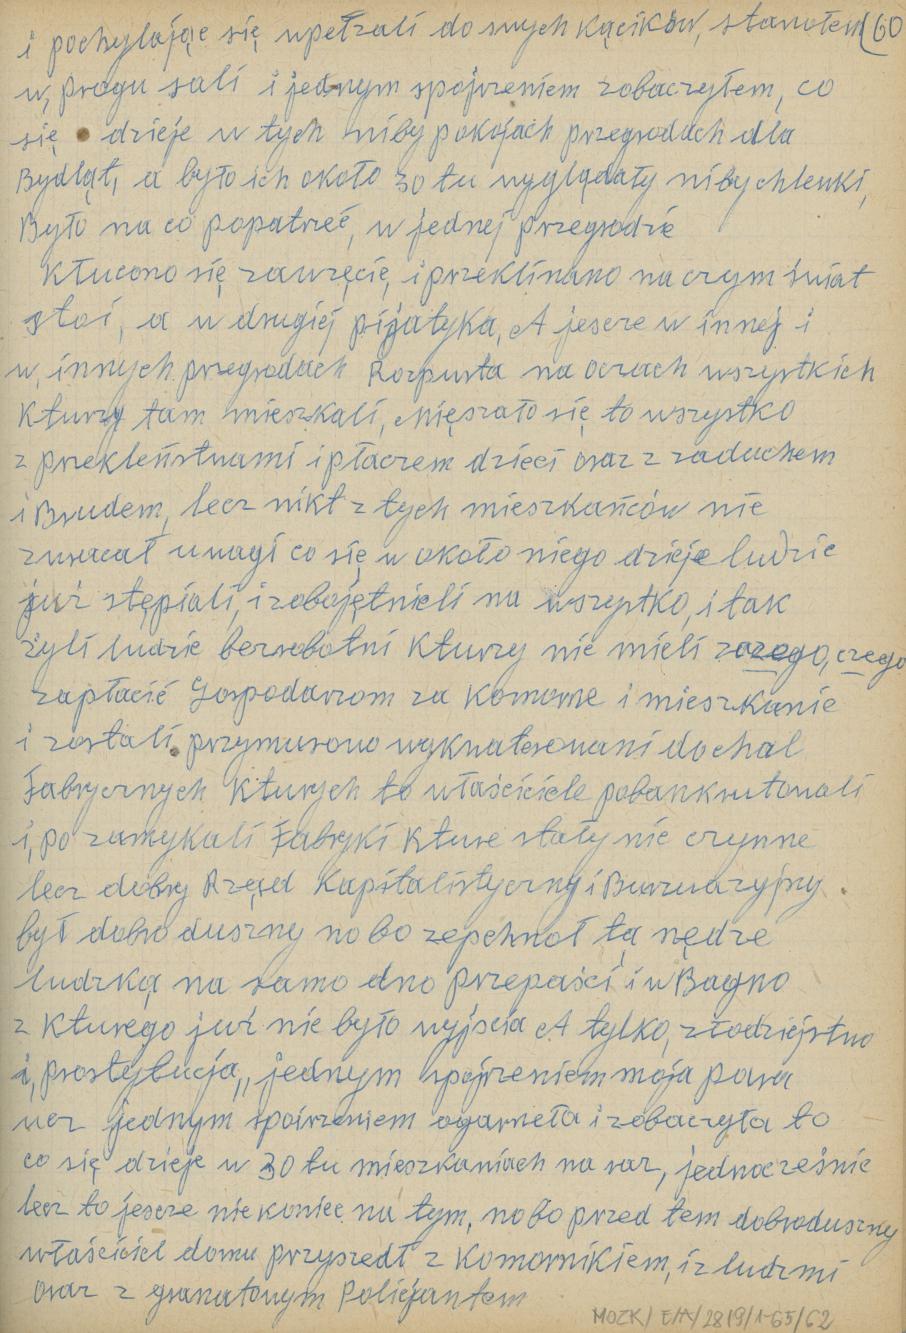 i pochylając się wpełzali do swych kącików, stanołem (60
w, progu sali i jednym spojrzeniem zobaczyłem, co
się dzieje w tych niby pokojach przegrodach dla
Bydląt, a było ich około 30 tu wyglądały niby chlewki,
Było na co popatrzeć, w jednej przegrodzie
Kłucono się zawzięcie, i przeklinano na czym świat
stoi, a w drugiej pijatyka, A jescze w innej i
w, innych przegrodach Rozpusta na oczach wszystkich
Kturzy tam mieszkali, Mięszało się to wszystko
z przekleństwami i płaczem dzieci oraz z zaduchem
i Brudem, lecz nikt z tych mieszkańców nie
zwracał uwagi co się w około niego dzieje ludzie
już stępiali, i zobojętnieli na wszystko, i tak
żyli ludzie bezrobotni Kturzy nie mieli czego
zapłacić Gospodarzom za Komorne i mieszkanie
i zostali przymusowo wykwaterowani do chal
Fabrycznych Kturych to właściciele pobankrutowali
i, po zamykali Fabryki Kture stały nie czynne
lecz dobry Rząd Kapitalistyczny i Burzuazyjny
był dobroduszny no bo zepchnoł tą nędze
ludzką na samo dno przepaści i w Bagno
z Kturego już nie było wyjscia A tylko, złodziejstwo
i, prostytucja,, jednym spojrzeniem moja para
ocz jednym spoirzeniem ogarneła i zobaczyła to
co się dzieje w 30 tu mieszkaniach na raz, jednocześnie
lecz to jescze nie koniec na tym, no bo przed tem dobroduszny
właściciel domu przyszedł z Komornikiem, i z ludzmi
oraz z granatowym Policjantem
MOZK/E/A/2819/1-65/62